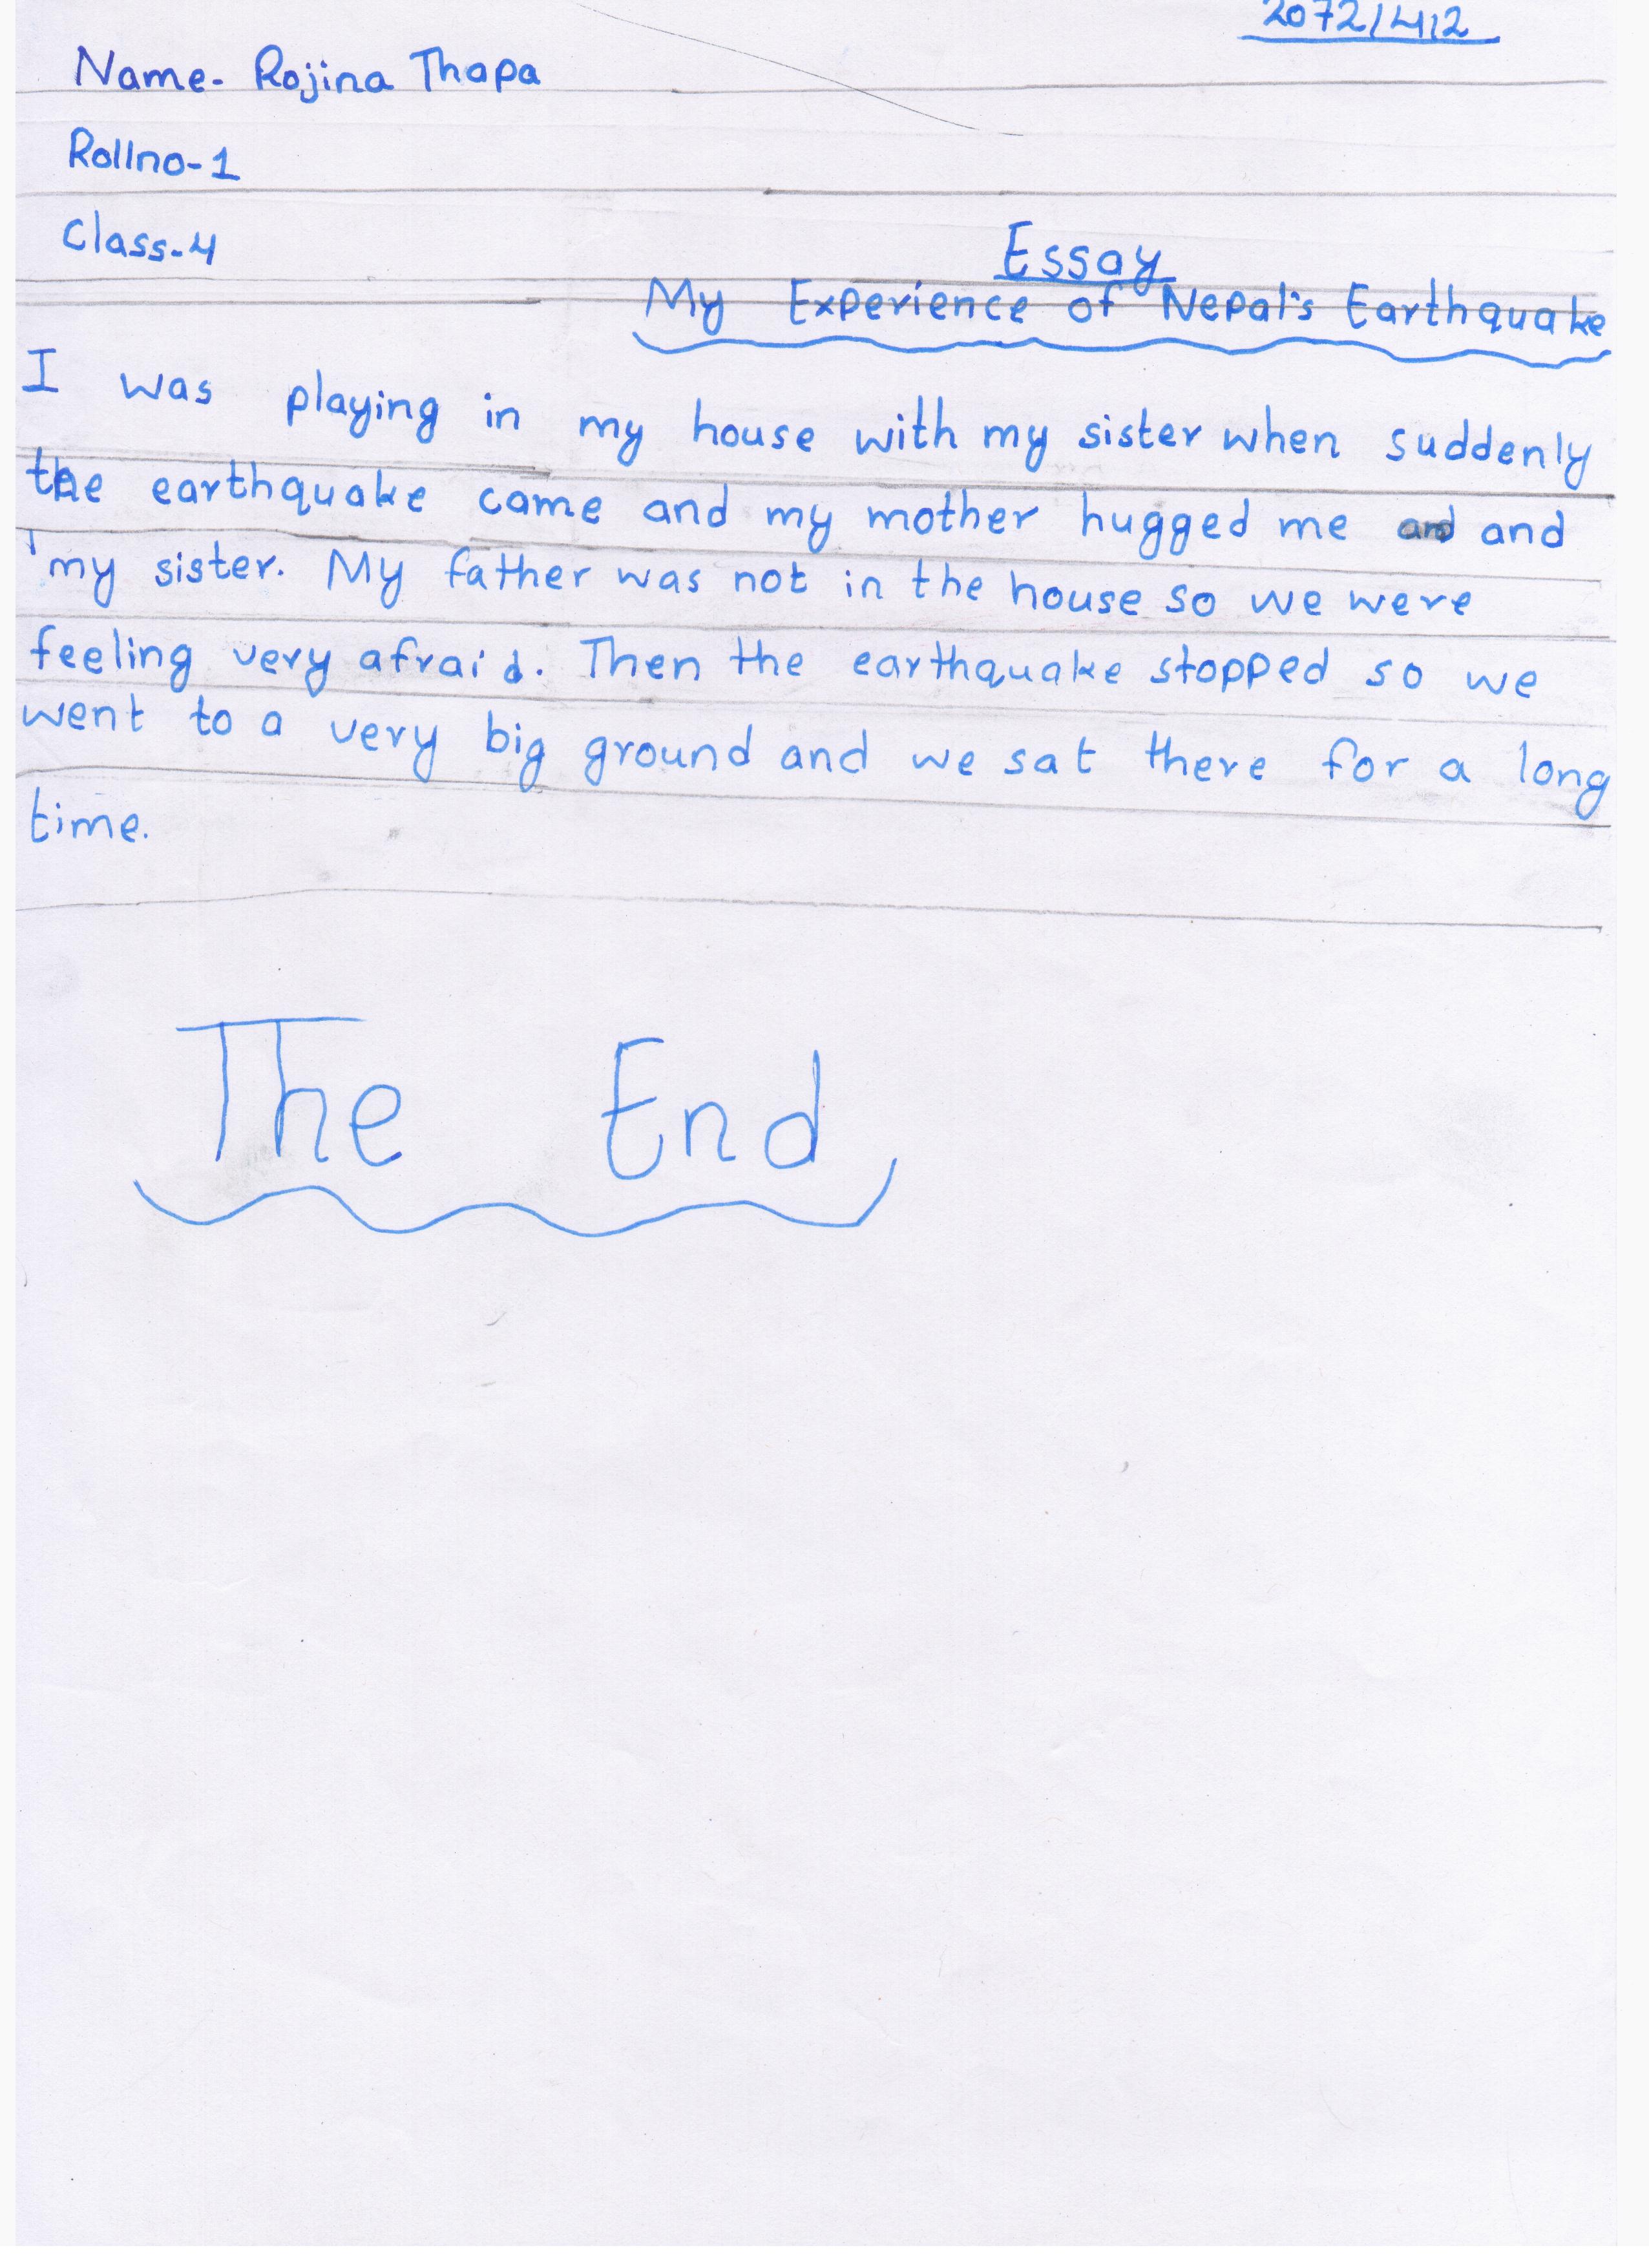 2072/4/2
Name- Rojina Thapa
Rollno-1
Class-4
Essay
My Experience of Nepal's Earthquake
I was playing in my house with my sister when suddenly
the earthquake came and my mother hugged me and and
my sister. My father was not in the house so we were
feeling very afraid. Then the earthquake stopped so we
went to a very big ground and we sat there for a long
time.
The End